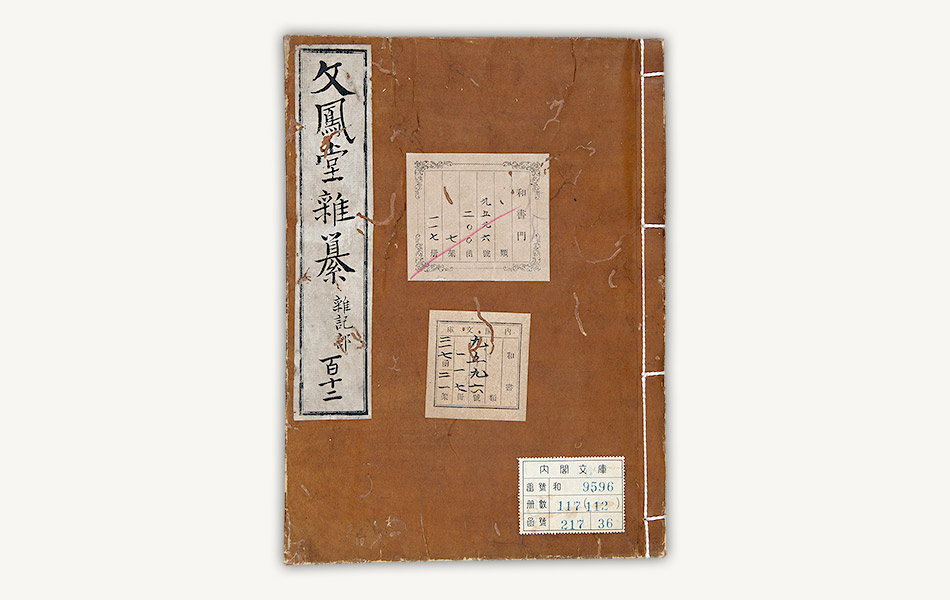 文鳳堂雜纂
雜記部
百十二
和書門
類
九五九六號
二〇〇函
七架
一一七冊
内閣文庫
和書
類
九五九六號
一一七冊
内閣文庫
番號 和 9596
冊數 117(112)
函號 217 36